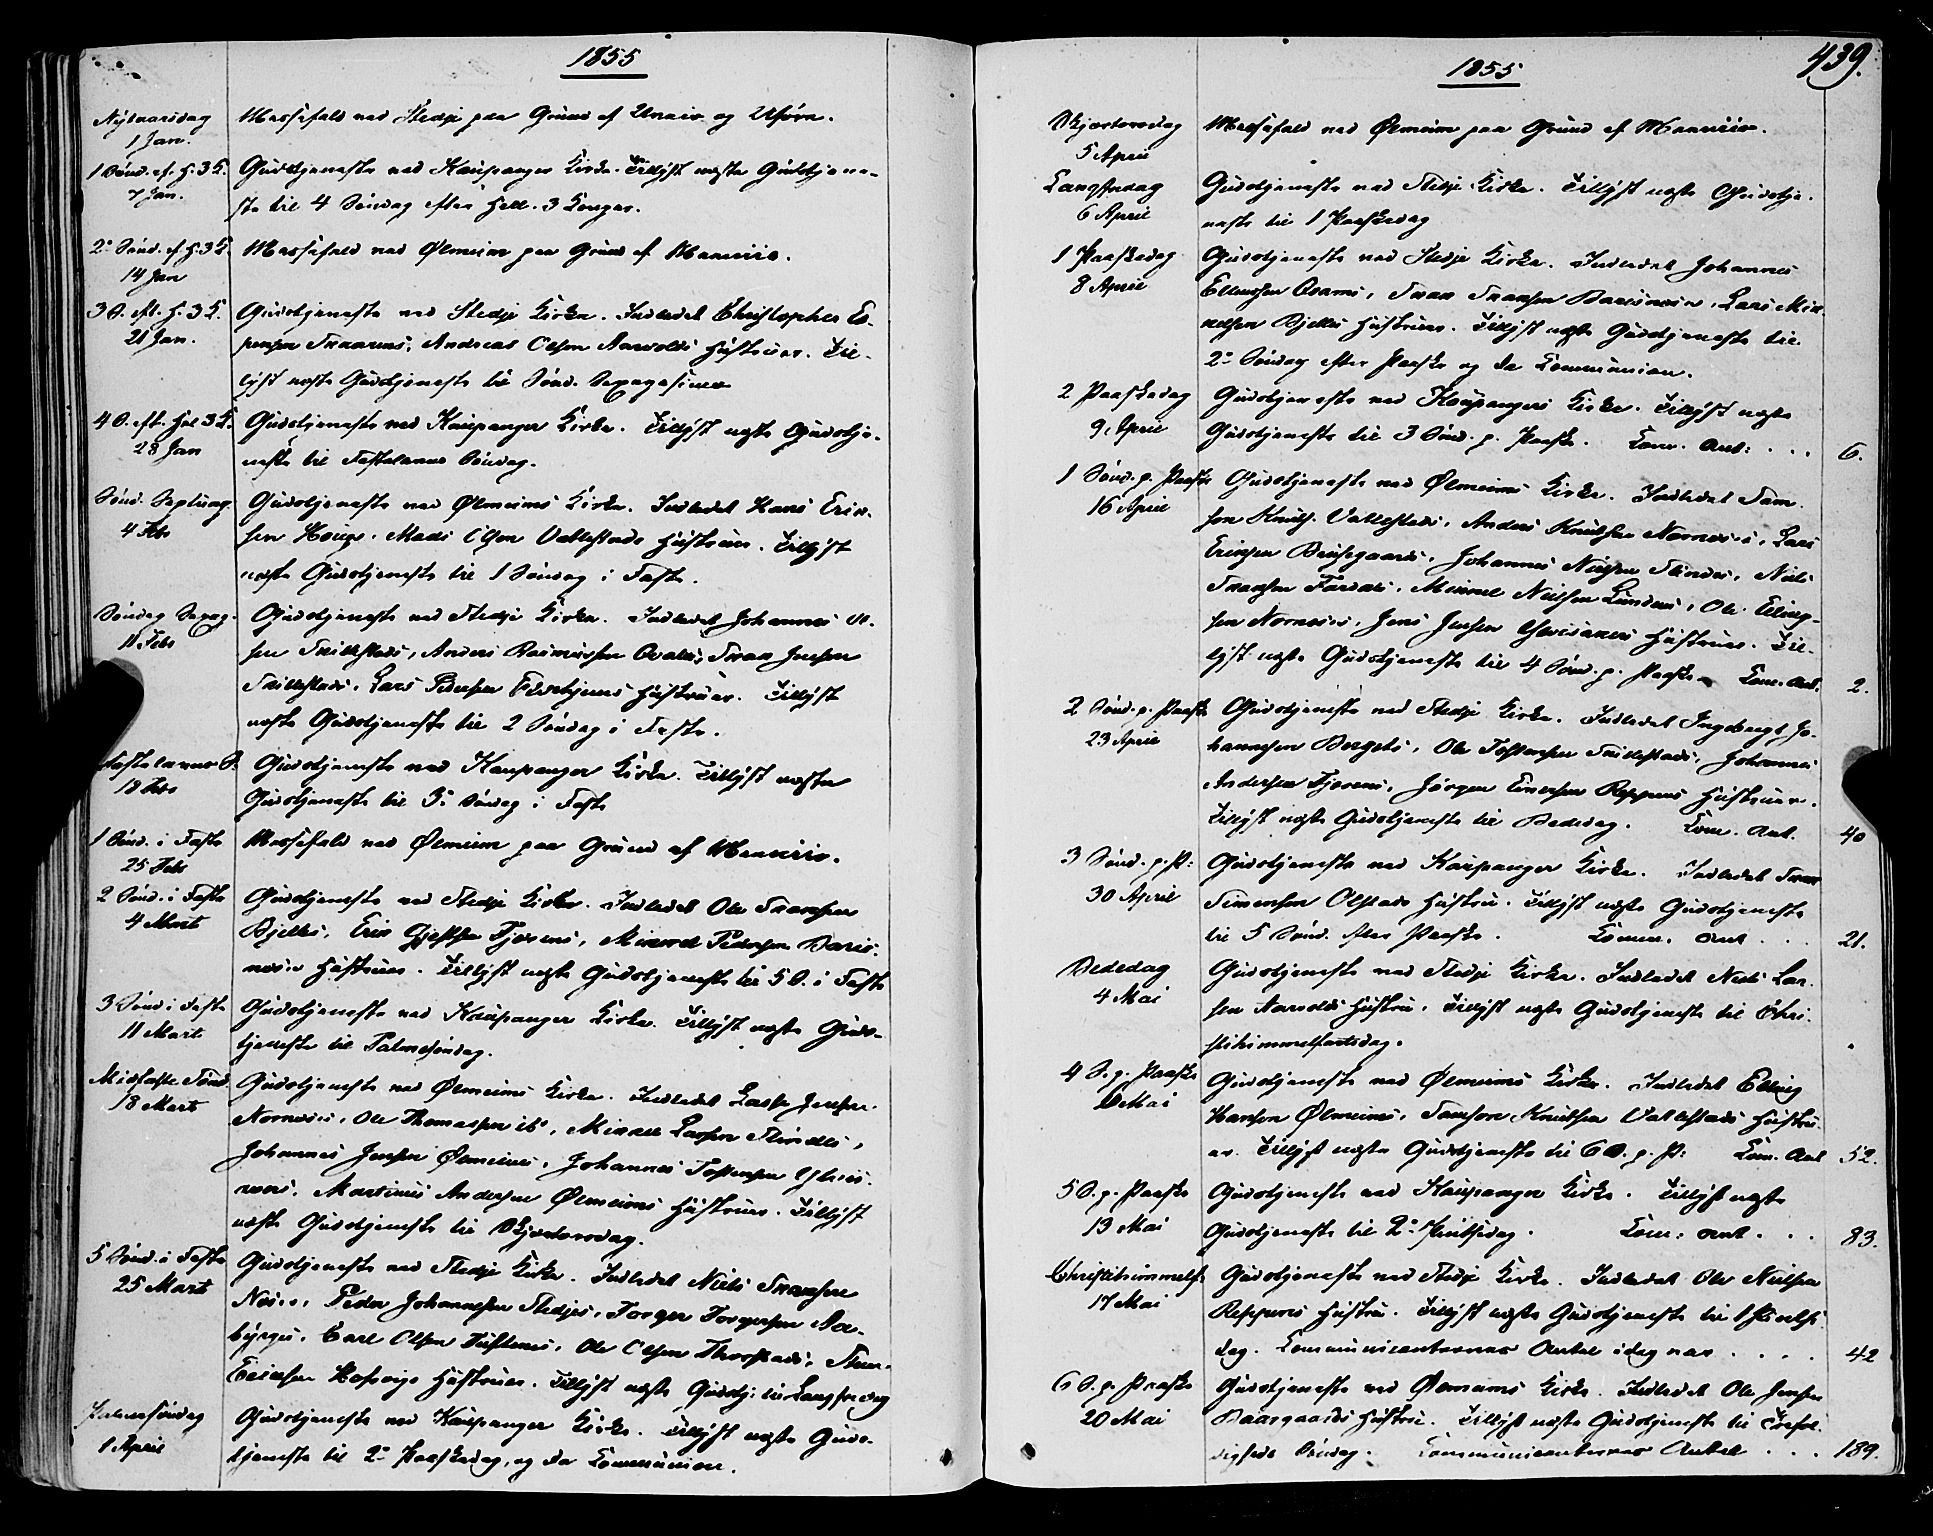 1855
Nytaarsdag
1 Jan.
Messefald ved Stedje paa Grund af Uveir og Uføre.
1 Sønd. ef. H. 3 K.
7 Jan.
Gudstjeneste ved Kaupanger Kirke. Tillyst næste Gudstjene-
ste til 4 Søndag efter Hell. 3 Konger.
2den Sønd. ef. H. 3 K.
14 Jan
Messefald ved Ølmeim paa Grund af
3 S. eft. H. 3 K.
21 Jan.
Gudstjeneste ved Stedje Kirke. Indledet Christopher Es-
pensen Andreas Olsen Aarvolds Hustruer. Til-
lyst næste Gudstjeneste til Sønd. Sexagesima
4 S. eft. Hel 3 K.
28 Jan
Gudstjeneste ved Kaupanger Kirke. Tillyst næste Gudstje-
neste til Fastelavns Søndag.
Sønd. Septuag.
4 Feb
Gudstjeneste ved Ølmeims Kirke. Indledet Hans Erik-
sen Mads Olsen Vallestads Hustruer. Tillyst
næste Gudstjeneste til 1 Søndag i Faste.
Søndag Sexag.
11 Feb
Gudstjeneste ved Stedje Kirke. Indledet Johannes
sen Anders Rasmussen Qvales, Ivar Jensen
Lars Pedersen Hustruer. Tillyst
næste Gudstjeneste til 2 Søndag i Faste.
Fastelavns S.
18 Feb
Gudstjeneste ved Kaupanger Kirke. Tillyst næste
Gudstjeneste til 3. Søndag i Faste
1 Sønd. i Faste
25 Feb
Messefald ved Ølmeim paa Grund af
2 Sønd. i Faste
4 Marts
Gudstjeneste ved Stedje Kirke. Indledet Ole Ivarsen
Bjelles, Erik Gjestsen Fjørens, Mikkel Pedersen Baris-
næs Hustruer. Tillyst næste Gudstjeneste til 5 S. i Faste
3 Sønd i Faste
11 Marts
Gudstjeneste ved Kaupanger Kirke. Tillyst næste Guds-
tjeneste til Palmesøndag.
Midfaste Sønd.
18 Marts
Gudstjeneste ved Ølmeims Kirke. Indledet Lasse Jensen
Nornæs, Ole Thomassen ib., Mikkel Larsen Slindes,
Johannes Jensen Ølmeims, Johannes Tostensen Ylvis-
Martinus Andersen Ølmeims Hustruer. Tillyst
næste Gudstjeneste til Skjærtorsdag.
5 Sønd. i Faste
25 Marts
Gudstjeneste ved Stedje Kirke. Indledet Niels Ivarsen
Peder Johannesen Stedjes, Torger Torgersen Aa-
bjerges, Carl Olsen Ole Olsen
Eriksen Hustruer. Tillyst næste Gudstj: til Langfredag
Palmesøndag
1 April
Gudstjeneste ved Kaupanger Kirke. Tillyst næste Guds-
tjeneste til 2den Paaskedag, og da Communion.
439.
1855
Skjærtorsdag
5 April
Messefald ved Ølmeim paa Grund af
Langfredag
6 April
Gudstjeneste ved Stedje Kirke. Tillyst næste Gudstje-
neste til 1 Paaskedag
1 Paaskedag
8 April
Gudstjeneste ved Stedje Kirke. Indledet Johannes
Ellensen Qvams, Ivar Ivarsen Barsnæs, Lars Mik-
kelsen Bjelles Hustruer. Tillyst næste Gudstjeneste til
2den Søndag efter Paaske og da Communion.
2 Paaskedag
9 April
Gudstjeneste ved Kaupangers Kirke. Tillyst næste
Gudstjeneste til 3 Sønd. p. Paaske. Com. Ant: . . . 6.
1 Sønd. p. Paaske
16 April
Gudstjeneste ved Ølmeims Kirke. Indledet Sam-
son Knuds. Vallestads, Anders Knudsen Nornæs, Lars
Eriksen Johannes Nielsen Slindes, Niels
Ivarsen Mikkel Nielsen Lundens, Ole Elling-
sen Nornæs, Jens Jensen Hustruer. Til-
lyst næste Gudstjeneste til 4 Sønd. p. Paaske. Com. Ant. 2.
2 Sønd. p. Paaske
23 April
Gudstjeneste ved Stedje Kirke. Indledet Ingebrigt Jo-
hannesen Ole Tostensen Johannes
Andersen Fjørens, Jørgen Einersen Reppens Hustruer.
Tillyst næste Gudstjeneste til Bededag. Com. Ant. 40
3 Sønd. p. P:
30 April
Gudstjeneste ved Kaupanger Kirke. Indledet Ivar
Simensen Olstads Hustru. Tillyst næste Gudstjeneste
til 5 Sønd. efter Paaske. Comm. Ant . . . 21.
Bededag
4 Mai
Gudstjeneste ved Stedje Kirke. Indledet Niels Lar-
sen Aarvolds Hustru. Tillyst næste Gudstjeneste til Chri-
stihimmelfartsdag.
4 S. p. Paaske
Mai
Gudstjeneste ved Ølmeims Kirke. Indledet Elling
Hansen Ølmeims, Samson Knudsen Vallestads Hustru-
er. Tillyst næste Gudstjeneste til 6 S. p. P: Com. Ant 52.
5 S. p. Paaske
13 Mai
Gudstjeneste ved Kaupanger Kirke. Tillyst næste
Gudstjeneste til 2den Pintsedag. Com: Ant. . . 83.
Christihimmelf.
17 Mai
Gudstjeneste ved Stedje Kirke. Indledet Ole Nielsen
Reppens Hustru. Tillyst næste Gudstjeneste til 1 Pintse-
dag. Communicanternes Antal idag var . . . . 42
6 S. p. Paaske
20 Mai
Gudstjeneste ved Ølmeims Kirke. Indledet Ole Jensen
Hustru. Tillyst næste Gudstjeneste til Trefol-
digheds Søndag. Communicanternes Antal . . . 189.